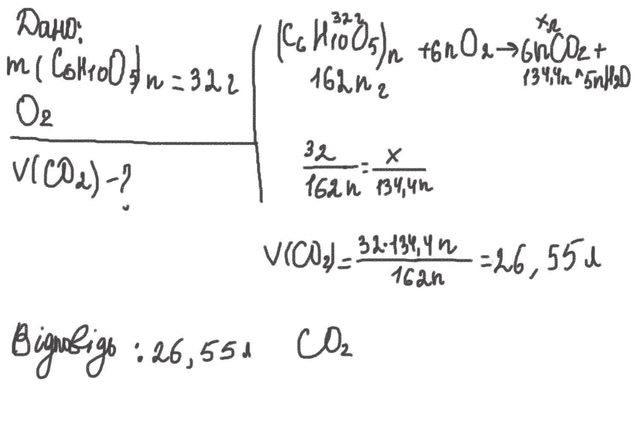 Дано:
m(C6H10O5)n = 32 г
O2
V(CO2) - ?
32 г x л
(C6H10O5)n + 6nO2 → 6nCO2 +
162n г 134,4n л 5nH2O
32/162n = x/134,4n
V(CO2) = 32·134,4n/162n = 26,55 л
Відповідь: 26,55 л CO2